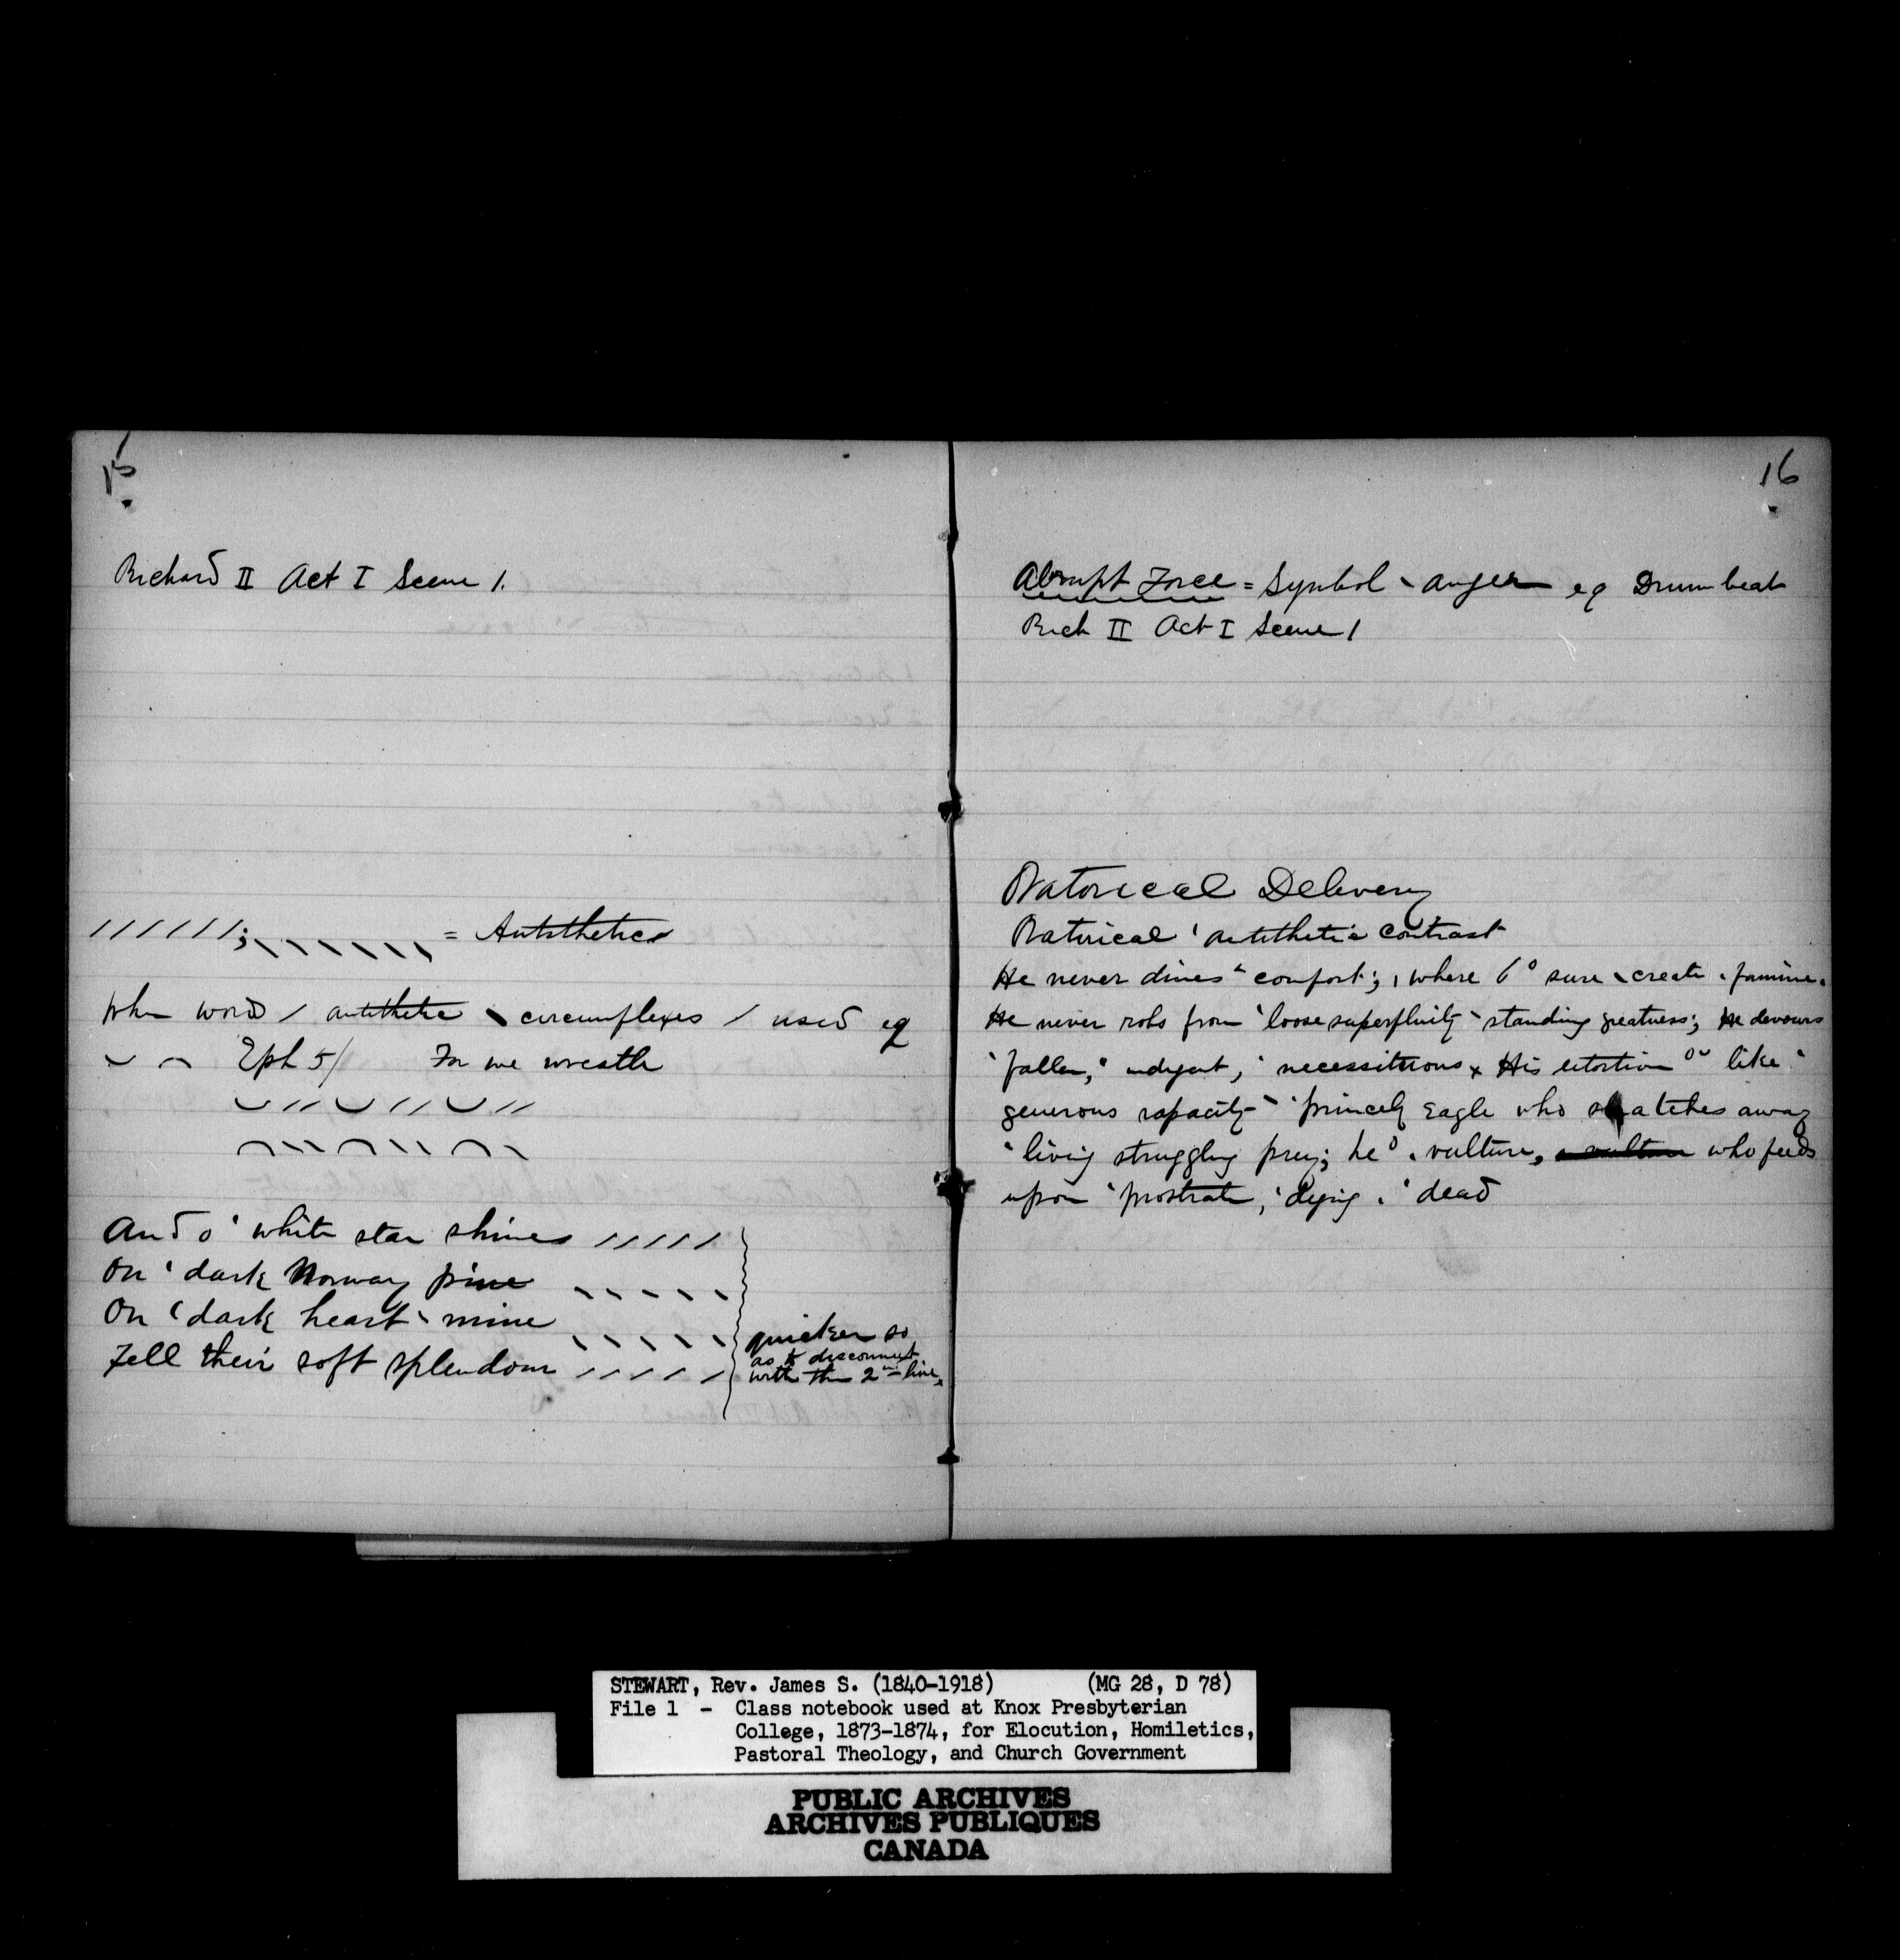 15
Richard II Act I Scene 1.
//////; \\\\\\\, = Antithetics
When words / antithetic \ circumflexes / used eg
Eph 5/ For we wrestle
And o ' white star shines /////
On ' dark Norway pine \\\\\
On ' dark heart ` mine \\\\\
Fell their soft splendour /////
quicker so
as to disconnect
with the 2nd line
16
Abrupt Force = Symbol ` anger eg Drum beat
Rich II Act I Scene 1
Oratorical Delivery
Oratorical ' antithetic contrast
He never dines comfort; , where 6° sure ` create . famine.
He never robs from ' loose superfluity ` standing greatness; He devours
' fallen, ' indigent, ' necessitous x His extortion like
generous rapacity ` ' princely Eagle who snatches away
' living struggling prey; he ° . vulture, a vulture who feeds
upon ' prostrate, ' dying . ' dead
STEWART, Rev. James S. (1840-1918) (MG 28, D 78)
File 1 - Class notebook used at Knox Presbyterian
College, 1873-1874, for Elocution, Homiletics,
Pastoral Theology, and Church Government
PUBLIC ARCHIVES
ARCHIVES PUBLIQUES
CANADA